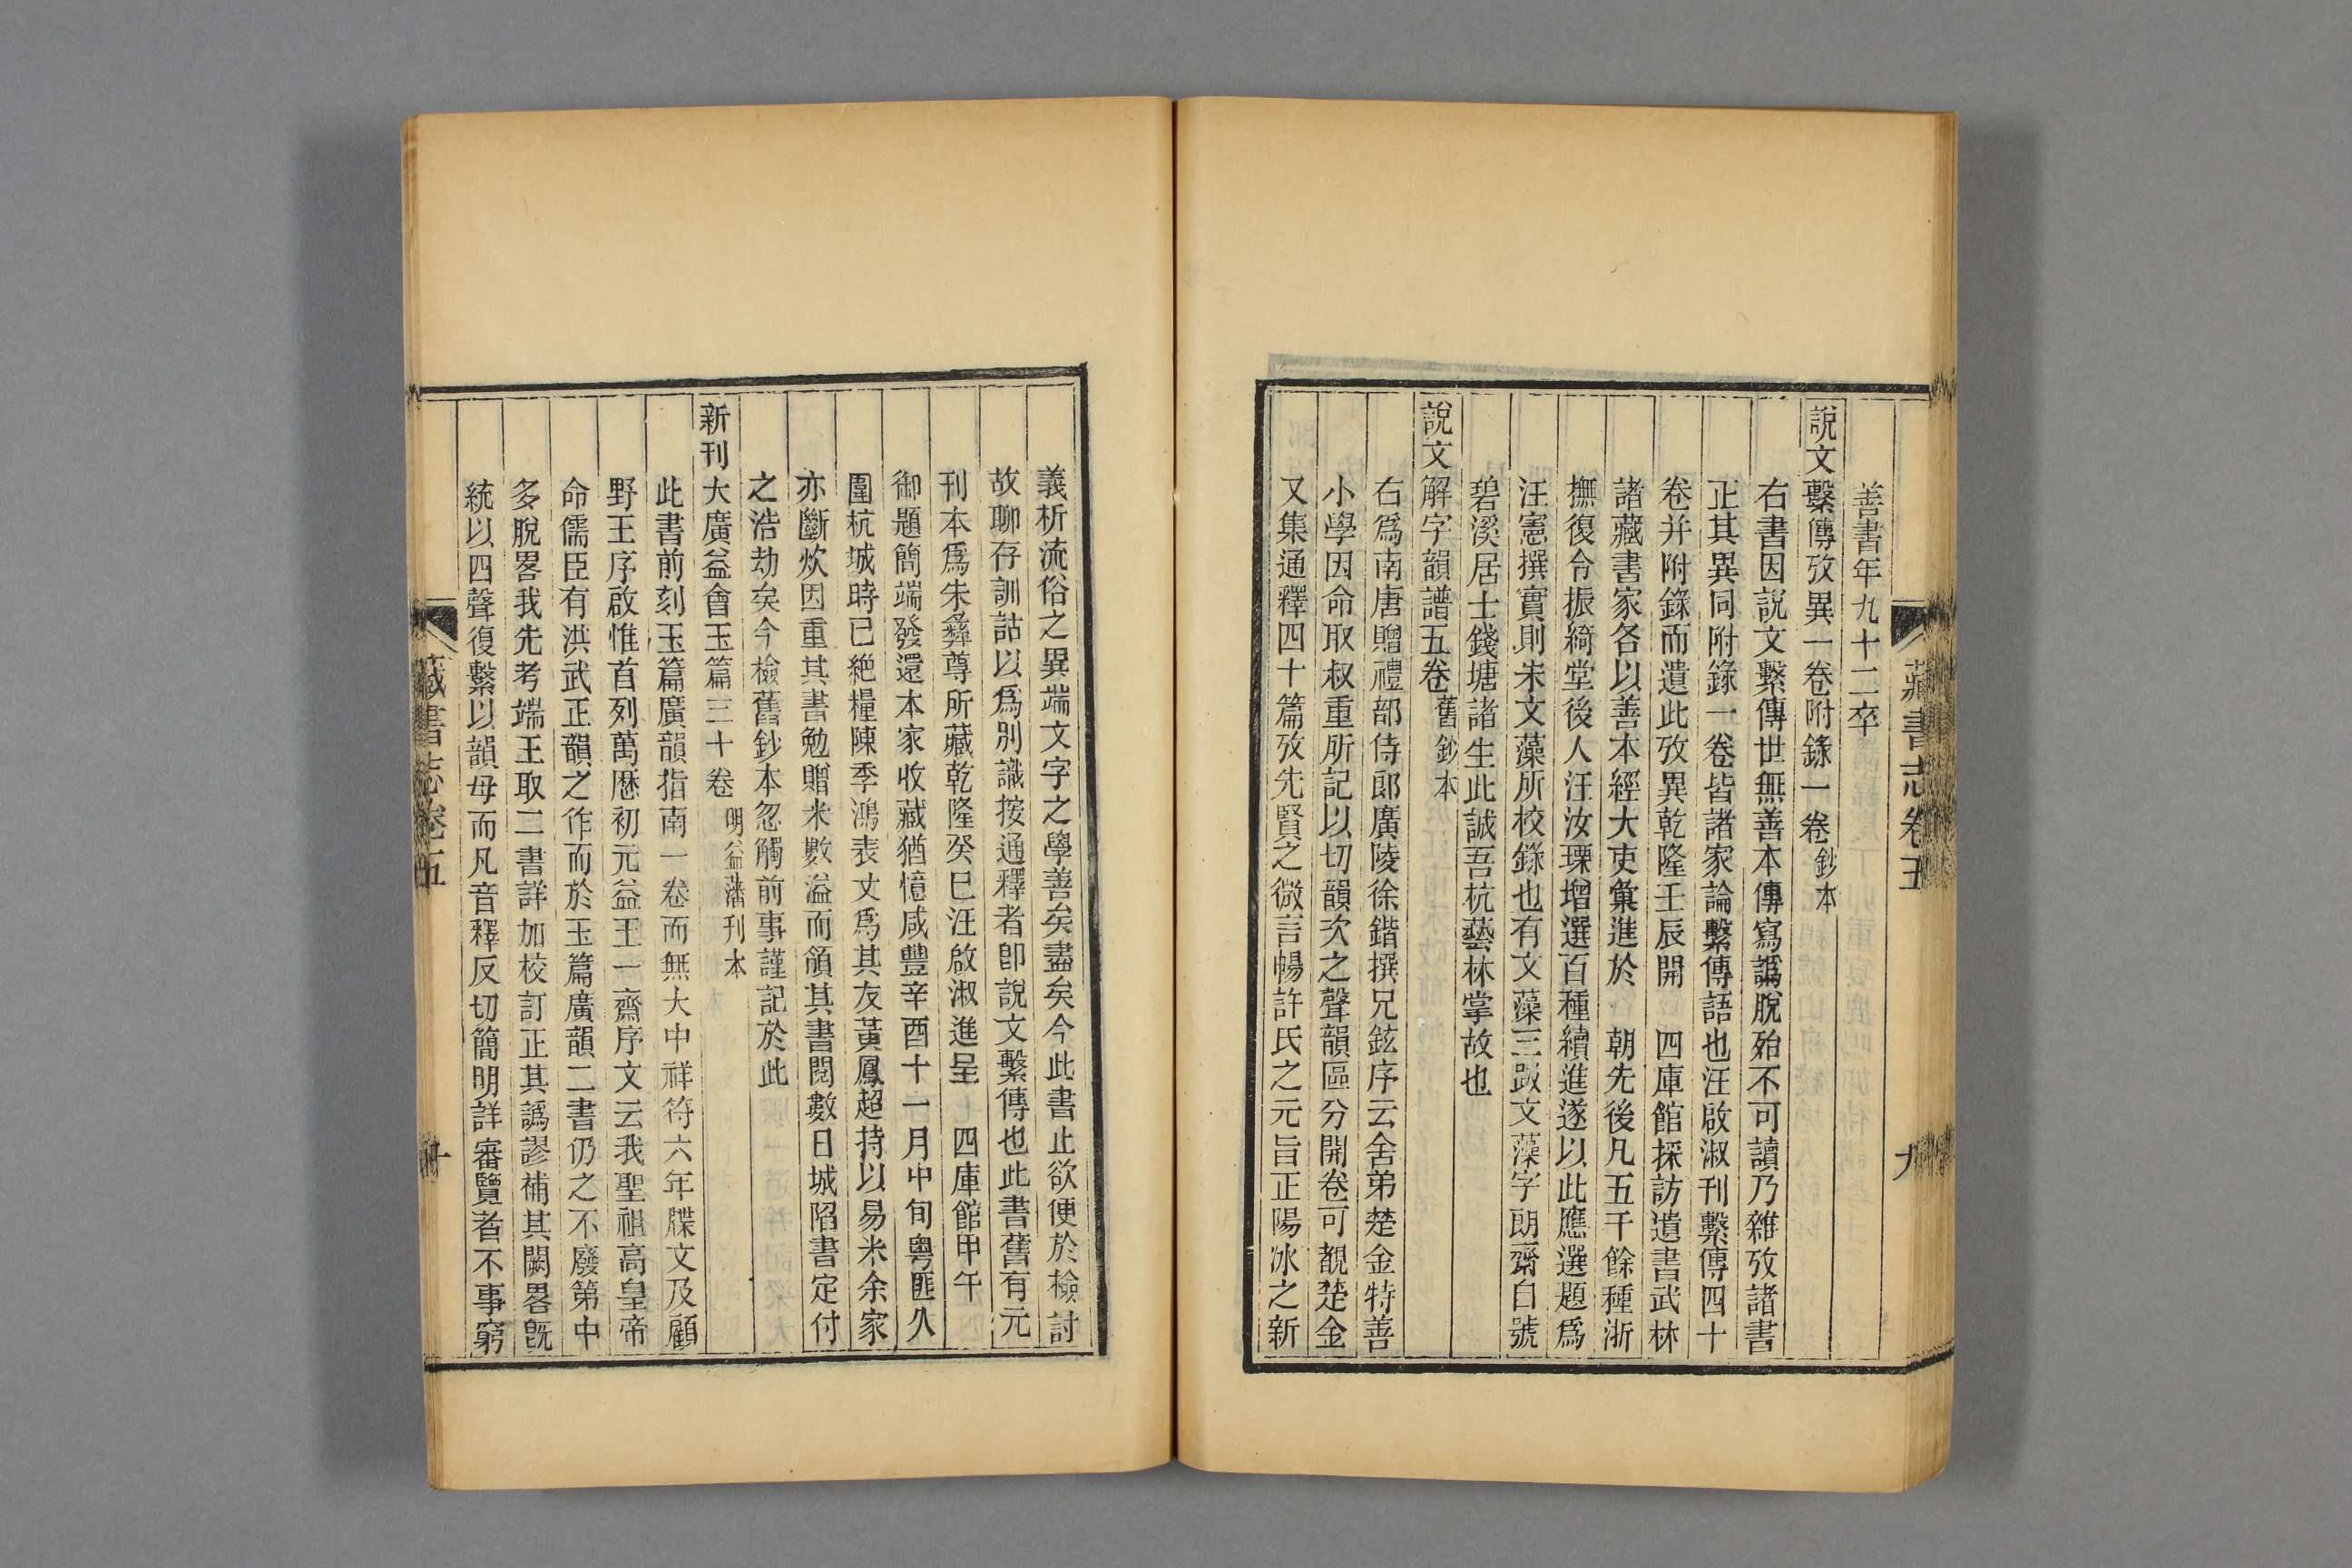 藏書志卷五
九
善書年九十二卒
說文繫傳攷異一卷附錄一卷鈔本
右書因說文繫傳世無善本傳寫譌脫殆不可讀乃雜攷諸書
正其異同附錄一卷皆諸家論繫傳語也汪啟淑刊繫傳四十
卷并附錄而遺此攷異乾隆壬辰開　四庫館採訪遺書武林
諸藏書家各以善本經大吏彙進於　朝先後凡五千餘種浙
撫復令振綺堂後人汪汝瑮增選百種續進遂以此應選題爲
汪憲撰實則朱文藻所校錄也有文藻三跋文藻字朗齋自號
碧溪居士錢塘諸生此誠吾杭藝林掌故也
說文解字韻譜五卷舊鈔本
右爲南唐贈禮部侍郎廣陵徐鍇撰兄鉉序云舍弟楚金特善
小學因命取叔重所記以切韻次之聲韻區分開卷可覩楚金
又集通釋四十篇攷先賢之微言暢許氏之元旨正陽冰之新
義析流俗之異端文字之學善矣盡矣今此書止欲便於檢討
故聊存訓詁以爲別識按通釋者即說文繫傳也此書舊有元
刊本爲朱彝尊所藏乾隆癸巳汪啟淑進呈　四庫館甲午
御題簡端發還本家收藏猶憶咸豐辛酉十一月中旬粵匪久
圍杭城時已絕糧陳季鴻表丈爲其友黃鳳超持以易米余家
亦斷炊因重其書勉贈米數溢而頷其書閱數日城陷書定付
之浩劫矣今檢舊鈔本忽觸前事謹記於此
新刊大廣益會玉篇三十卷明益藩刊本
此書前刻玉篇廣韻指南一卷而無大中祥符六年牒文及顧
野王序啟惟首列萬歷初元益王一齋序文云我聖祖高皇帝
命儒臣有洪武正韻之作而於玉篇廣韻二書仍之不廢第中
多脫畧我先考端王取二書詳加校訂正其譌謬補其闕畧既
統以四聲復繫以韻母而凡音釋反切簡明詳審覽者不事窮
藏書志卷五
十